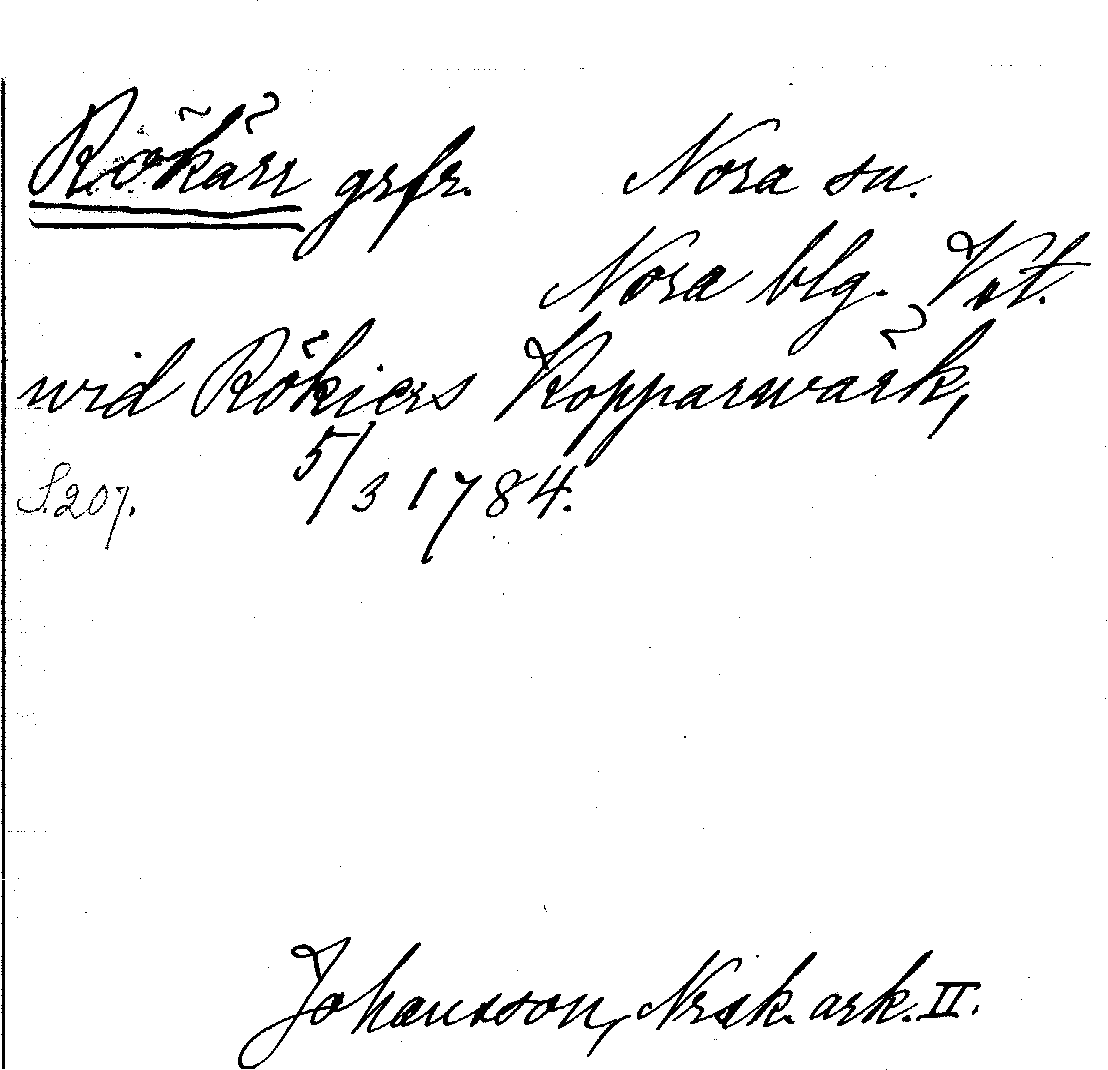 Rökärr grfr. Nora sn.
Nora blg. Vst.
wid Rökiers Kopparwärk,
S. 207. 5/3 1784.
Johansson, Nrsk. ark. II.